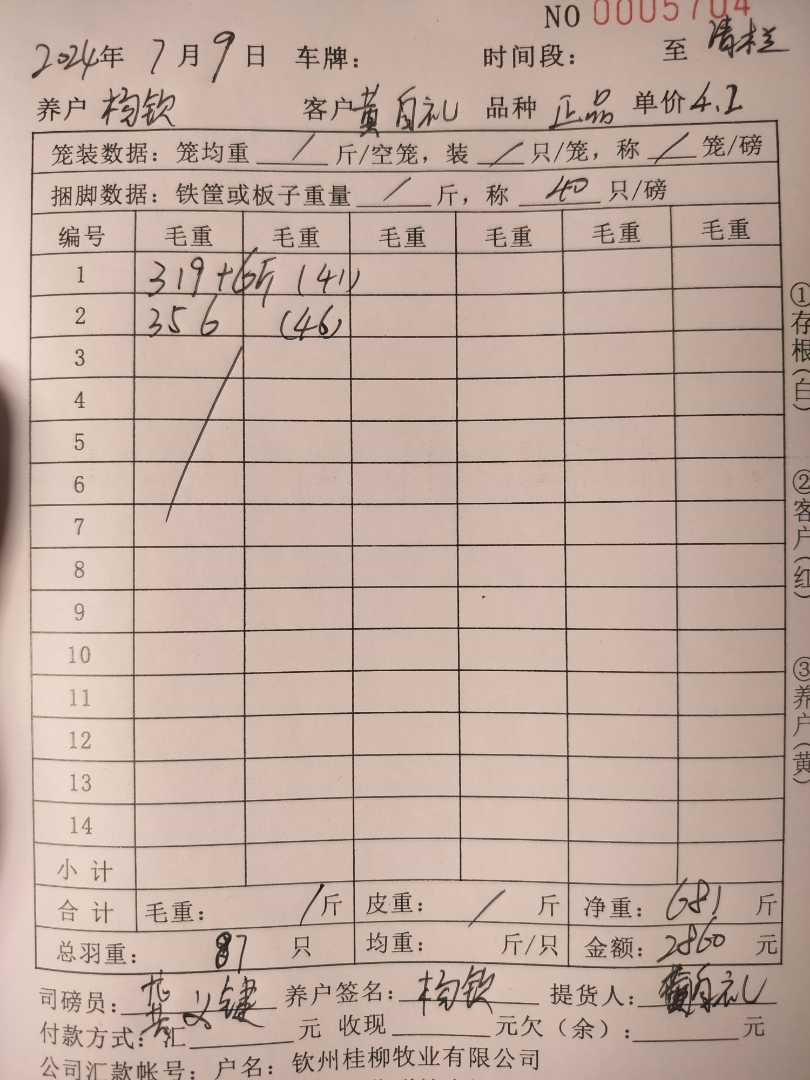 NO 0005704
2024年 7月9日 车牌： 时间段： 至 清栏
养户 杨钦 客户 黄自礼 品种 正品 单价 4.2
笼装数据：笼均重 / 斤/空笼，装 / 只/笼，称 / 笼/磅
捆脚数据：铁筐或板子重量 / 斤，称 40 只/磅
编号 毛重 毛重 毛重 毛重 毛重 毛重
1 319+6斤 (41)
2 356 (46)
3
4
5
6
7
8
9
10
11
12
13
14
小计
合计 毛重： / 斤 皮重： / 斤 净重：681 斤
总羽重： 87 只 均重： 斤/只 金额：2860 元
司磅员： 养户签名：杨钦 提货人：黄自礼
付款方式：汇 元 收现 元欠（余）： 元
公司汇款帐号：户名：钦州桂柳牧业有限公司
①存根（白）
②客户（红）
③养户（黄）